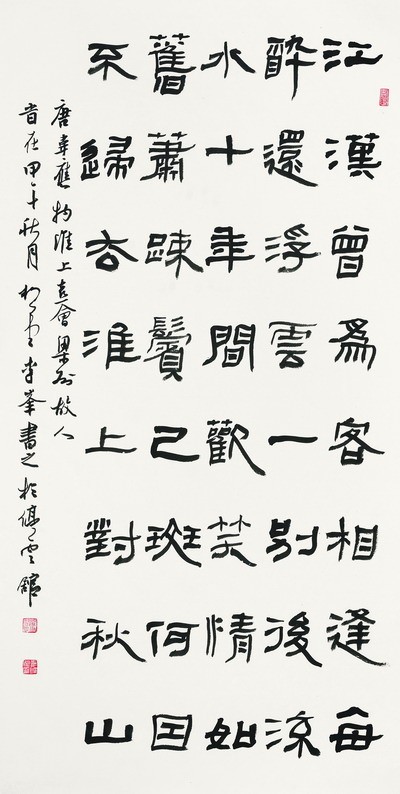 江漢曾爲客相逢每
醉還浮雲一別後流
水十年間歡笑情如
舊蕭踈鬢已斑何囙
不歸去淮上對秋山
唐韋應物淮上喜會梁州故人
歲在甲午秋月李峯書之於停雲館